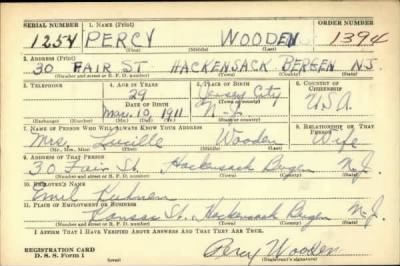 SERIAL NUMBER 1. NAME (Print) ORDER NUMBER
1254 PERCY WOODEN 1394
(First) (Middle) (Last)
2. ADDRESS (Print)
30 FAIR ST HACKENSACK BERGEN N.J.
(Number and street or R. F. D. number) (Town) (County) (State)
3. TELEPHONE 4. AGE IN YEARS 5. PLACE OF BIRTH 6. COUNTRY OF CITIZENSHIP
29 Jersey City
DATE OF BIRTH (Town or county)
Mar. 10, 1911 N. J. U.S.A.
(Exchange) (Number) (Mo.) (Day) (Yr.) (State or country)
7. NAME OF PERSON WHO WILL ALWAYS KNOW YOUR ADDRESS 8. RELATIONSHIP OF THAT PERSON
Mrs. Lucille Wooden Wife
(Mr., Mrs., Miss) (First) (Middle) (Last)
9. ADDRESS OF THAT PERSON
30 Fair St. Hackensack Bergen N.J.
(Number and street or R. F. D. number) (Town) (County) (State)
10. EMPLOYER'S NAME
Emil
11. PLACE OF EMPLOYMENT OR BUSINESS
Kansas St. Hackensack Bergen N.J.
(Number and street or R. F. D. number) (Town) (County) (State)
I AFFIRM THAT I HAVE VERIFIED ABOVE ANSWERS AND THAT THEY ARE TRUE.
REGISTRATION CARD
D. S. S. Form 1 (over) Percy Wooden
(Registrant's signature)